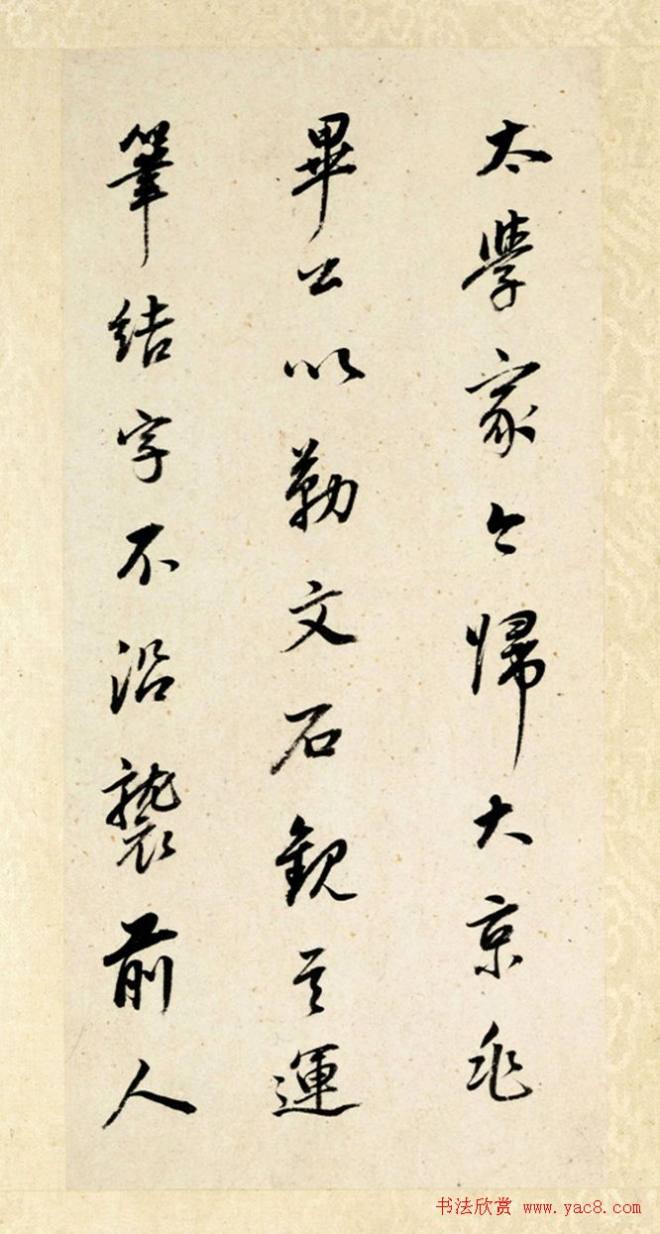 太學家今歸大京兆
畢公以勒文石觀其運
筆結字不沿襲前人
书法欣赏 www.yac8.com